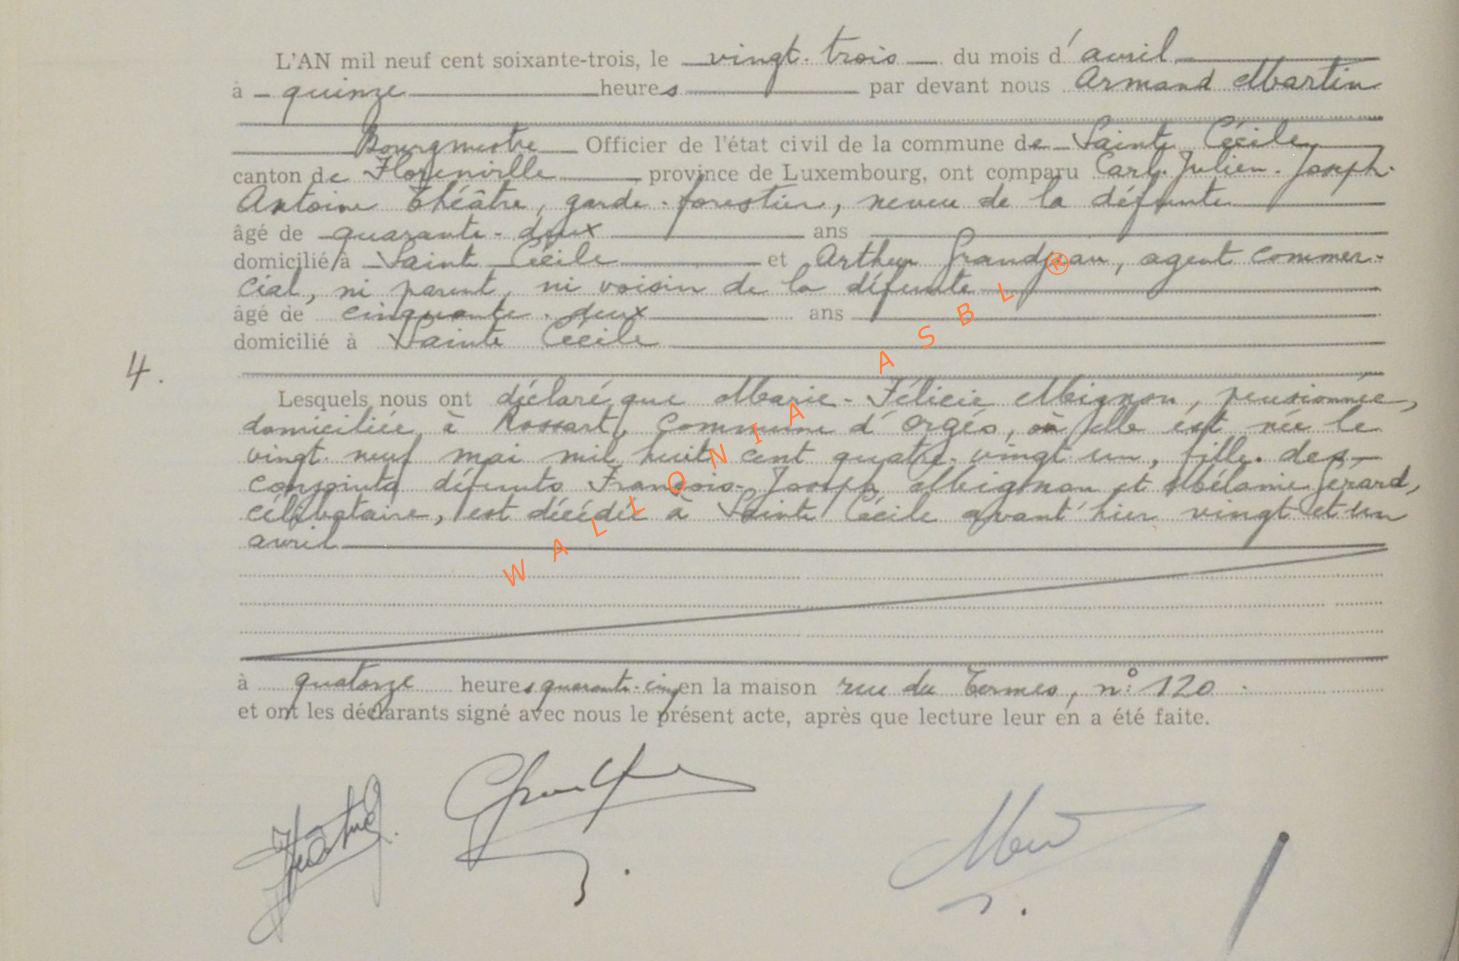 L'AN mil neuf cent soixante-trois, le vingt-trois du mois d'avril
à quinze heures par devant nous Armand Martin
Bourgmestre Officier de l'état civil de la commune de Sainte Cécile,
canton de Florenville province de Luxembourg, ont comparu Carl-Julien-Joseph-
Antoine Théâtre, garde-forestier, neveu de la défunte
âgé de quarante-deux ans
domicilié à Sainte Cécile et Arthur Grandjean, agent commer-
cial, ni parent, ni voisin de la défunte
âgé de cinquante-deux ans
domicilié à Sainte Cécile
4.
Lesquels nous ont déclaré que Marie-Félicie Mignon, pensionnée,
domiciliée à Rossart, Commune d'Orgéo, où elle est née le
vingt neuf mai mil huit cent quatre-vingt un, fille des
conjoints défunts François-Joseph Mignon et Mélanie Gerard,
célibataire, est décédée à Sainte Cécile avant hier vingt et un
avril
à quatorze heures quarante-cinq en la maison rue du Termes, n° 120.
et ont les déclarants signé avec nous le présent acte, après que lecture leur en a été faite.
WALLONIA ASBL ®